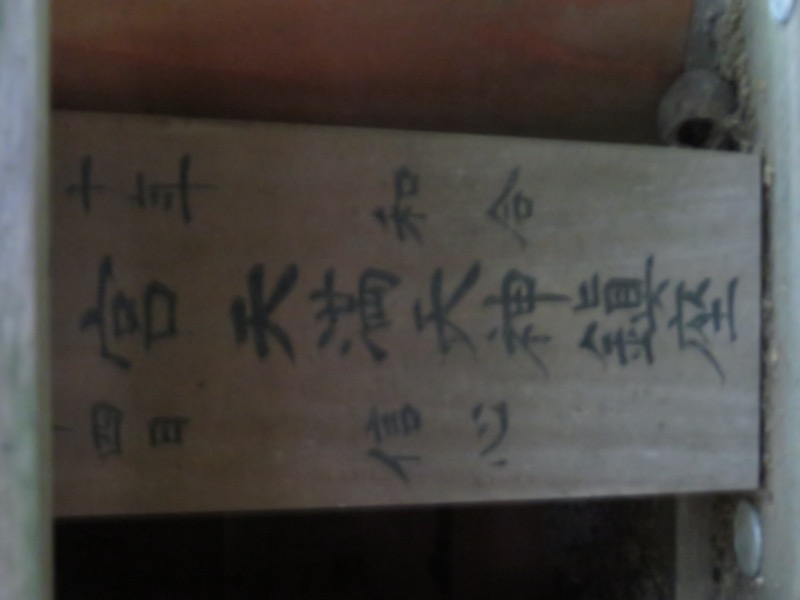 十年 和合
宮 天満天神鎮座
四日 信心